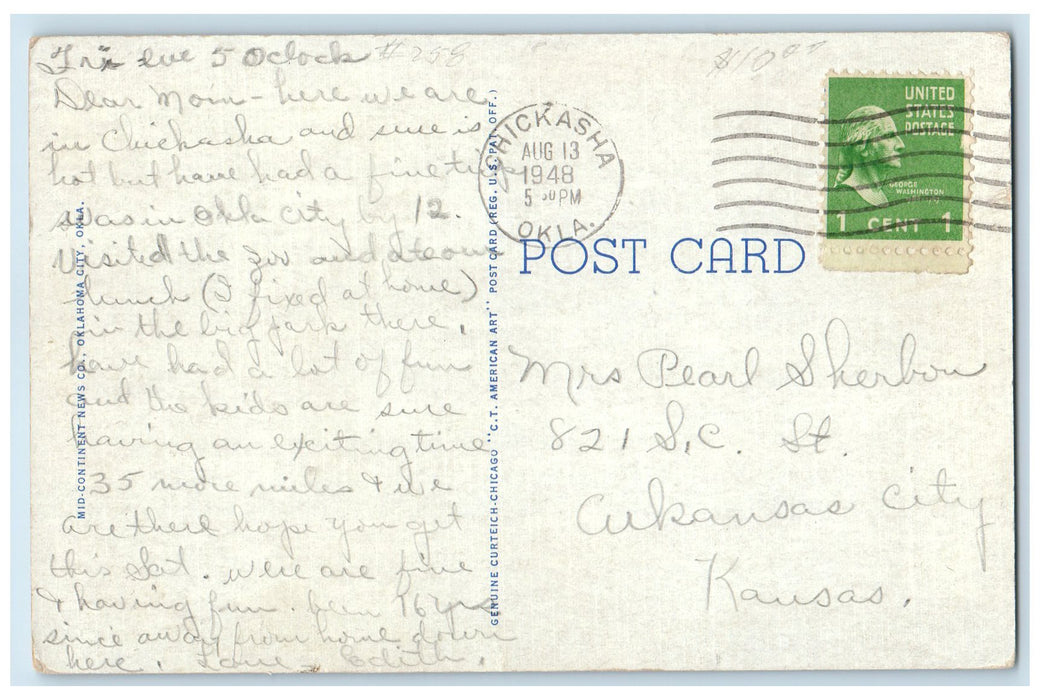 Fri eve 5 Oclock #258
Dear Mom - here we are
in Chickasha and sure is
hot but have had a fine trip
was in Okla City by 12.
Visited the zoo and ate our
lunch (I fixed at home)
in the big park there,
have had a lot of fun
and the kids are sure
having an exciting time
35 more miles & we
are there hope you get
this Sat. were are fine
& having fun. been 16 yrs
since away from home down
here. Love - Edith.
MID-CONTINENT NEWS CO., OKLAHOMA CITY, OKLA.
GENUINE CURTEICH-CHICAGO "C.T. AMERICAN ART" POST CARD (REG. U.S. PAT. OFF.)
CHICKASHA
AUG 13
1948
5 30 PM
OKLA.
$10
UNITED
STATES
POSTAGE
GEORGE
WASHINGTON
1 CENT 1
POST CARD
Mrs Pearl Sherbon
821 S, C St.
Arkansas City
Kansas.